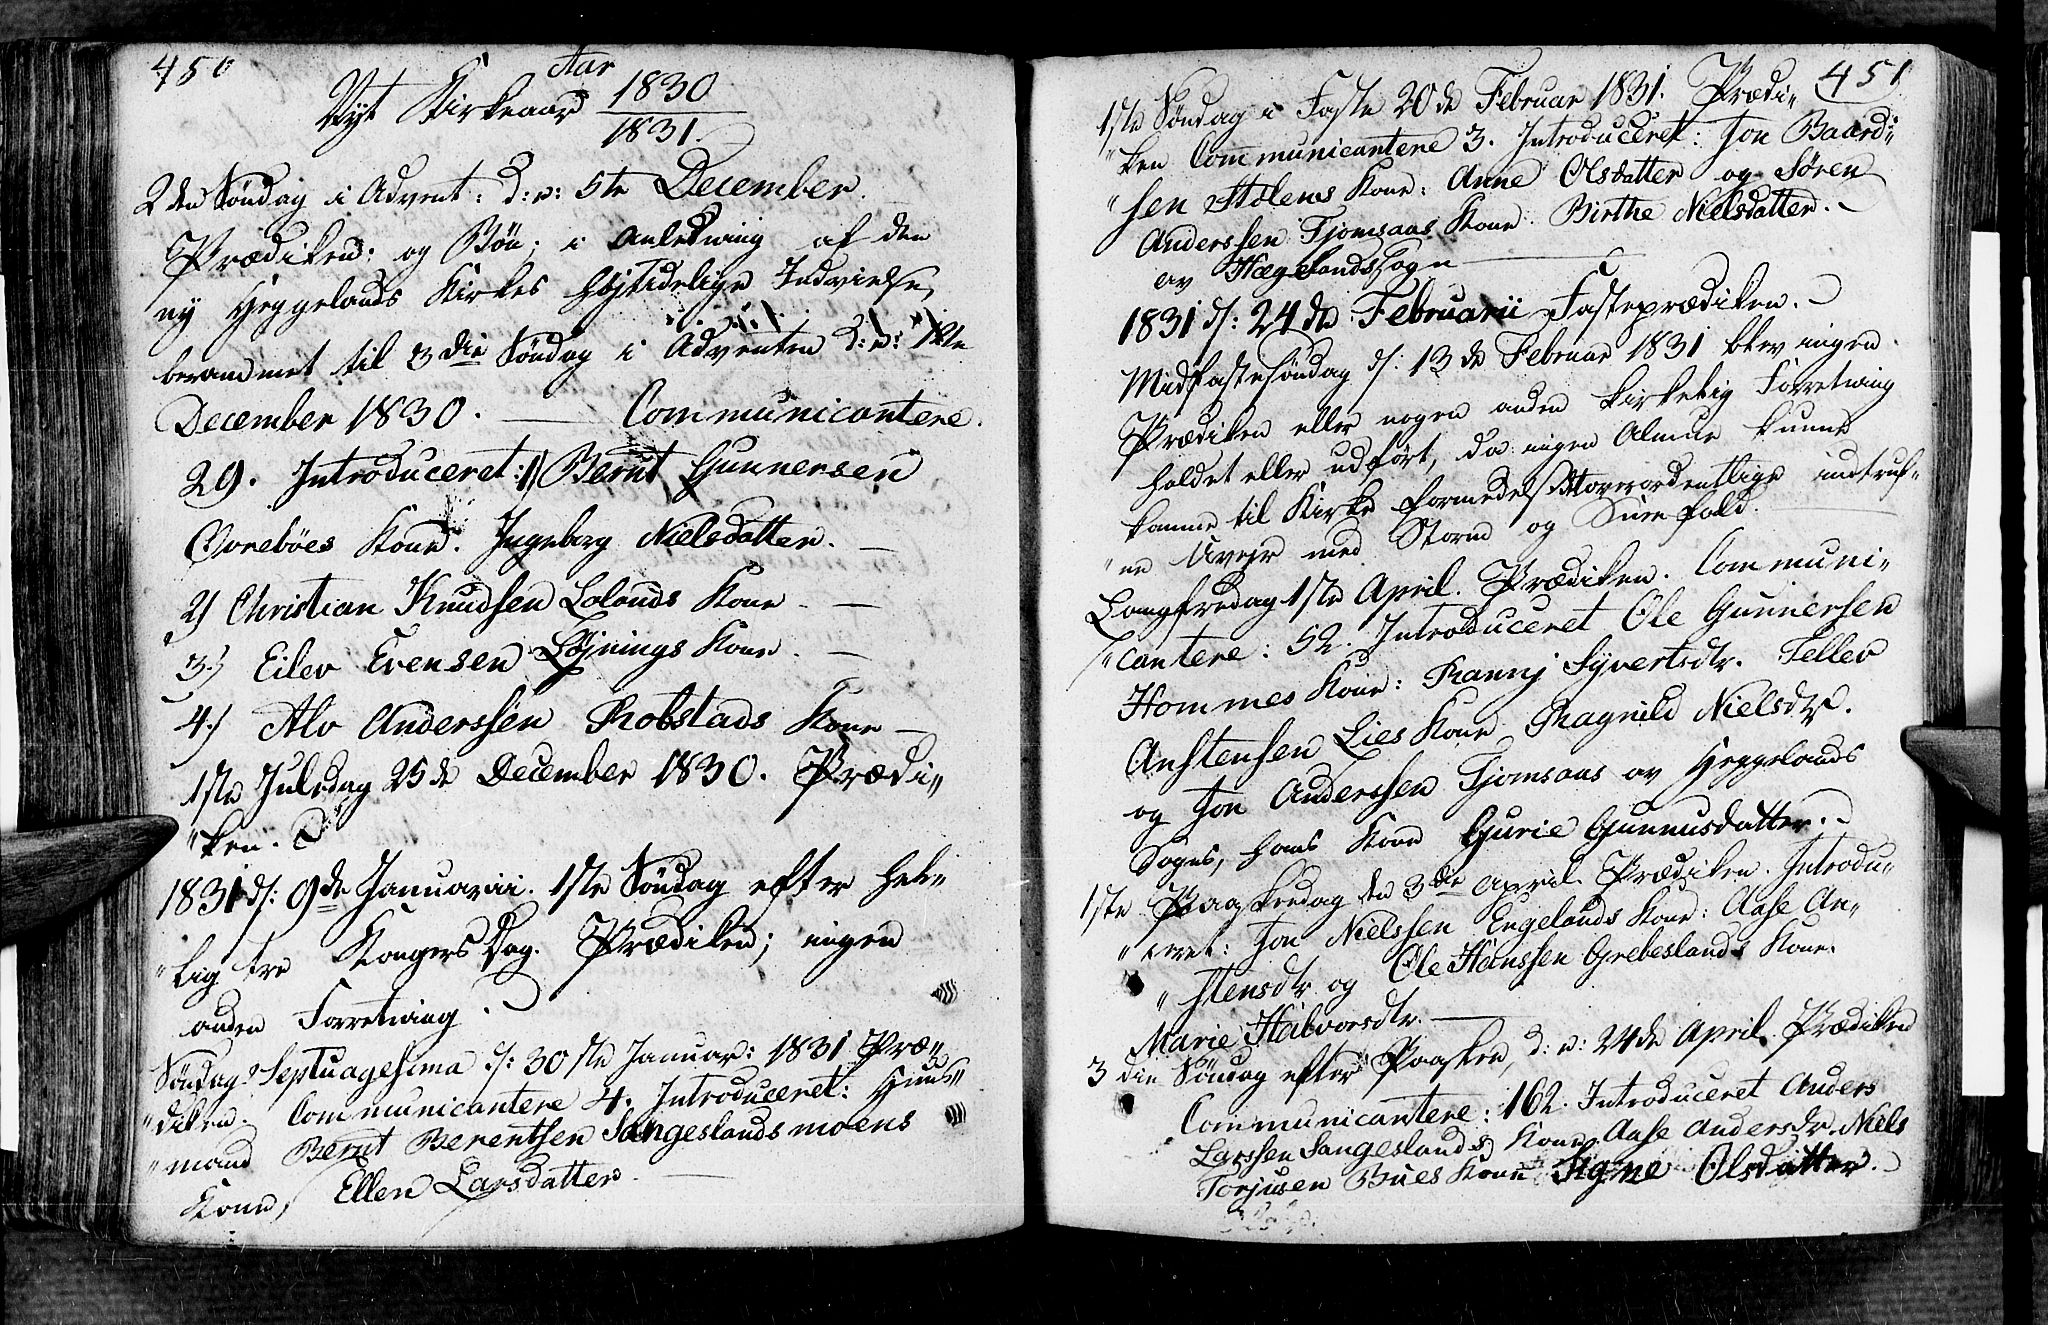 450
Aar
Nyt Kirkeaar 1830
1831.
2den Søndag i Advent: d: v: 5te December.
Prædiken: og Bøn; i Anledning af den
ny Heggelands Kirkes højtidelige Indvielse,
berammet til 3die Søndag i Adventen d: v: 12te
December 1830. — Communicantere.
29. Introduceret: 1) Bernt Gunnersen
Øvrebøes Kone. Ingeborg Nielsdatter. —
2) Christian Knudsen Lolands Kone. —
3.) Eilev Evensen Løjnings Kone. —
4.) Alv Anderssen Robstads Kone —
1ste Juledag 25de December 1830. Prædi„
„ken.
1831 d: 9de Januarii. 1ste Søndag efter Hel„
„lig tre Kongers Dag. Prædiken; ingen
anden Forretning.
Søndag Septuagesima d: 30ste Januar: 1831 Præ„
„diken. Communicantere 4. Introduceret: Huus„
„mand Bernt Berentsen Sangeslandsmoens
Kone, Ellen Larsdatter. —
451
1ste Søndag i Faste 20de Februar 1831. Prædi„
„ken Communicantere 3. Introduceret: Jon Baard„
„sen Stølens Kone: Anne Olsdatter og Søren
Anderssen Tjomsaas Kone. Birthe Nielsdatter. —
av Hægelands Sogn —
1831 d: 24de Februarii Fasteprædiken. —
Midfastesøndag d: 13de Februar 1831 blev ingen
Prædiken eller nogen anden kirkelig Forretning
holdet eller udført, da ingen Almue kunne
komme til Kirke formedelst overordentlige indtruf„
„ne Uvejr med Storm og Sneefald. —
Langfredag 1ste April. Prædiken. Communi„
„cantere: 52. Introduceret Ole Gunnersen
Hommes Kone: Rannj Syvertsdtr. Tellev
Anstensen Lies Kone Ragnild Nielsdtr.
og Jon Anderssen Tjomsaas av Heggelands
Sogn, hans Kone Gurie Gunnusdatter. —
1ste Paaskedag den 3die April. Prædiken. Introdu„
„ceret: Jon Nielssen Engelands Kone: Aase An„
„stensdtr og Ole Hanssen Grebeslands Kone.
Marie Halvorsdtr. —
3die Søndag efter Paaske, d: v: 24de April. Prædiken
Communicantere: 162. Introduceret Anders
Larssen Sangeslands Kone Aase Andersdr. Niels
Torjusen Bues Kone Signe Olsdatter. —